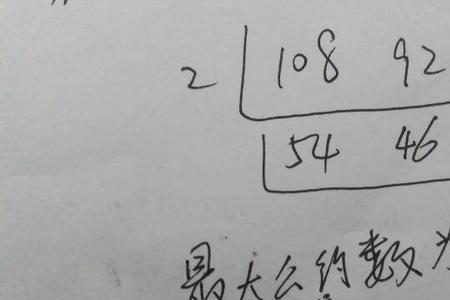 2 108 92
54 46
最大公约数